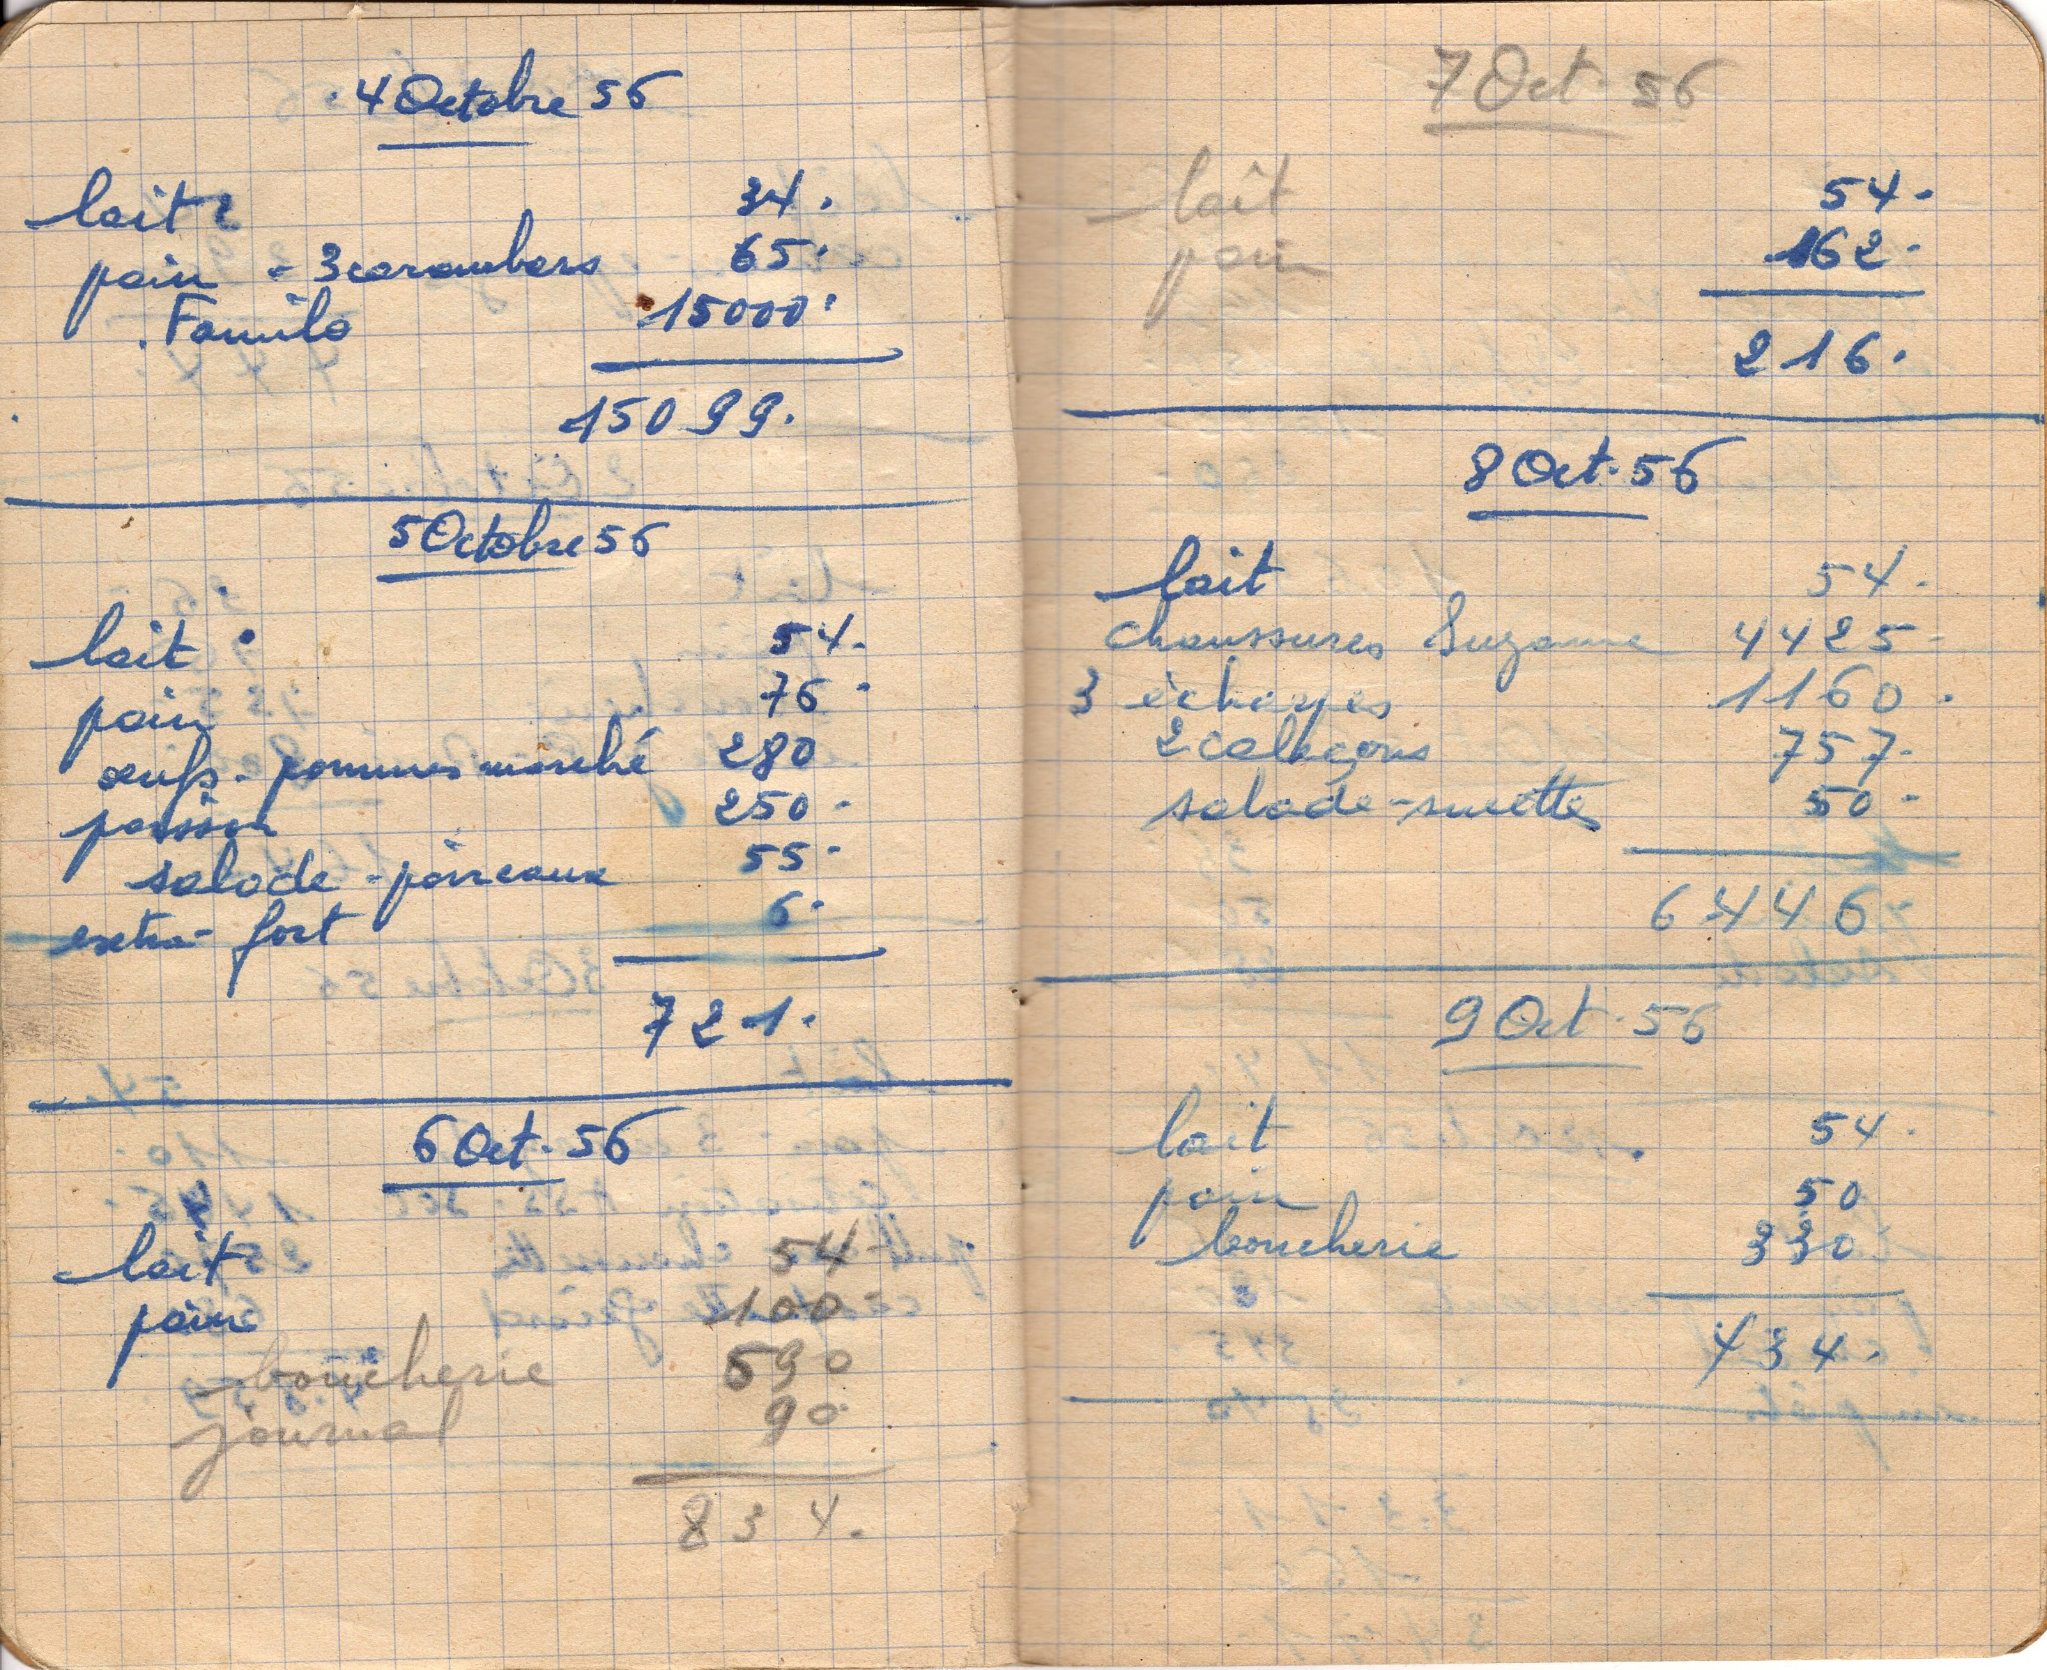 4 Octobre 56
lait 34.
pain - 3 carambars 65.
Familo 15000.
15099.
5 Octobre 56
lait 54.
pain 76.
oeufs - pommes marché 280
poisson 250.
salade - poireaux 55.
extra-fort 6.
721.
6 Oct. 56
lait 54
pain 100
boucherie 590
journal 90
834.
7 Oct. 56
lait 54.
pain 162.
216.
8 Oct. 56
lait 54.
chaussures Suzanne 4425
3 écharpes 1160.
2 caleçons 757.
salade - sucettes 50
6446
9 Oct. 56
lait 54.
pain 50
boucherie 330
434.